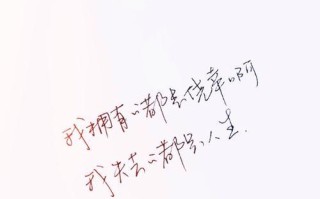 我拥有的都是侥幸啊
我失去的都是人生